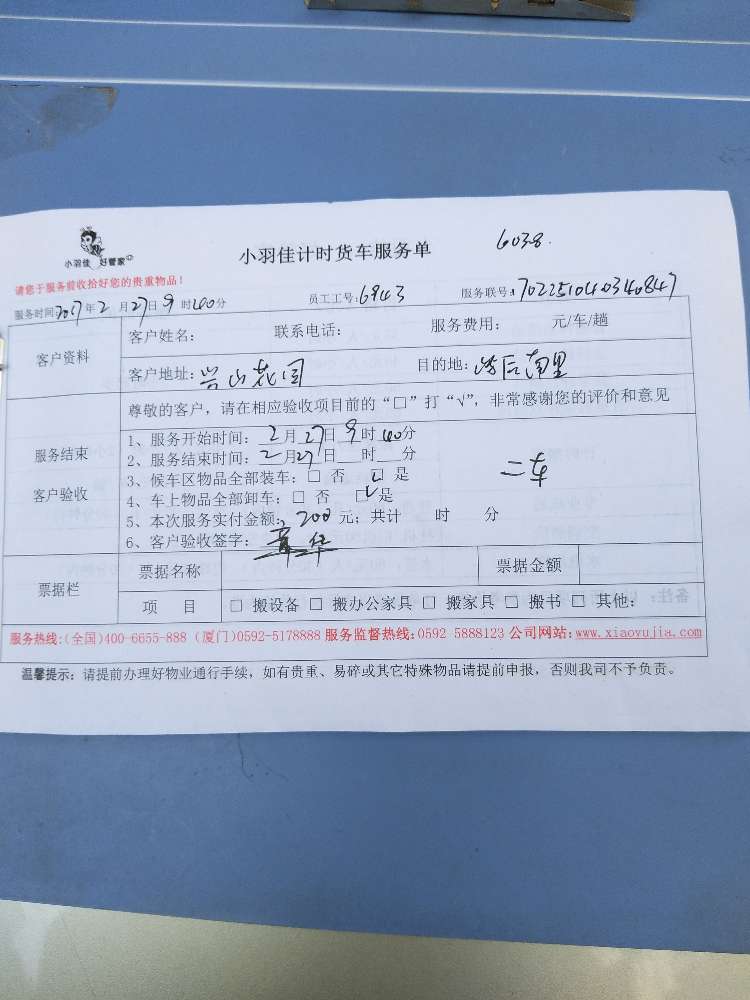 小羽佳 好管家
小羽佳计时货车服务单 6038.
请您于服务前收拾好您的贵重物品！
服务时间2017年2月27日9时40分 员工工号：6943 服务联号：702251040340847
客户资料
客户姓名： 联系电话： 服务费用： 元/车/趟
客户地址： 兴山花园 目的地： 后南里
服务结束
客户验收
尊敬的客户，请在相应验收项目前的“□”打“√”，非常感谢您的评价和意见
1、服务开始时间：2月27日9时40分
2、服务结束时间：2月27日 时 分
3、候车区物品全部装车：□ 否 □ 是
4、车上物品全部卸车：□ 否 □ 是
二车
5、本次服务实付金额：200元；共计 时 分
6、客户验收签字： 华
票据栏
票据名称 票据金额
项 目 □ 搬设备 □ 搬办公家具 □ 搬家具 □ 搬书 □ 其他：
服务热线：(全国)400-6655-888 (厦门)0592-5178888 服务监督热线：0592 5888123 公司网站：www.xiaoyujia.com
温馨提示：请提前办理好物业通行手续，如有贵重、易碎或其它特殊物品请提前申报，否则我司不予负责。